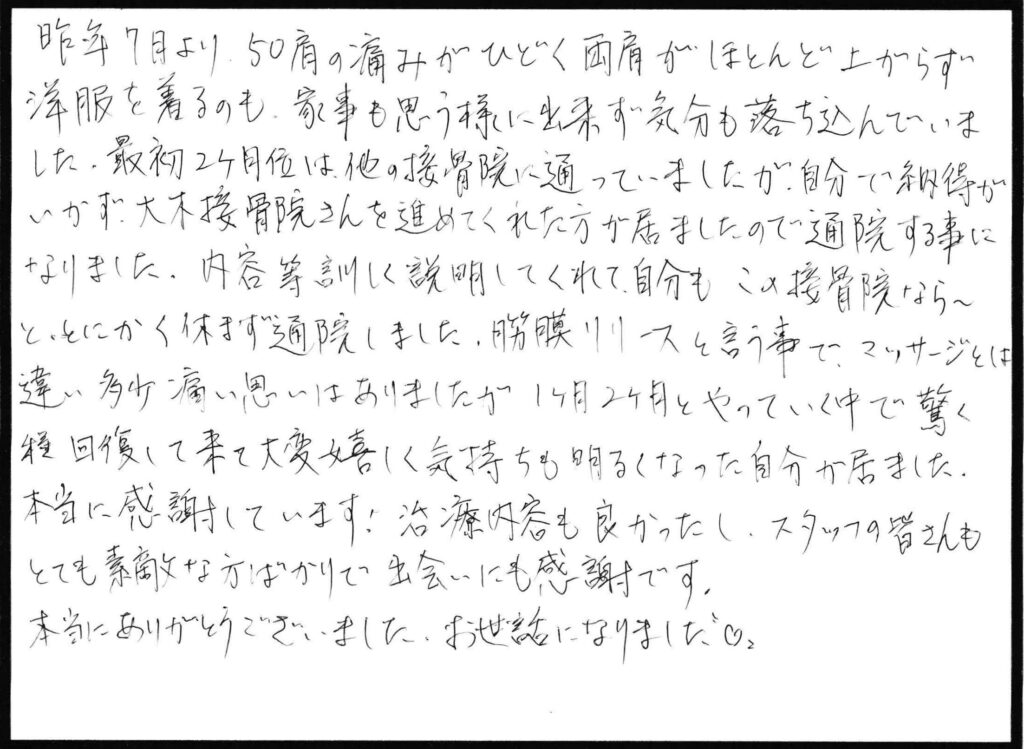 昨年7月より、50肩の痛みがひどく両肩がほとんど上がらず
洋服を着るのも、家事も思う様に出来ず気分も落ち込んでいま
した。最初2ヶ月位は、他の接骨院に通っていましたが、自分で納得が
いかず、大木接骨院さんを進めてくれた方が居ましたので通院する事に
なりました。内容等訓しく説明してくれて、自分も この接骨院なら〜
と、とにかく休まず通院しました。筋膜リリースと言う事で、マッサージとは
違い 多少 痛い思いはありましたが 1ヶ月2ヶ月とやっていく中で驚く
程回復して来て大変嬉しく気持ちも明るくなった自分が居ました。
本当に感謝しています! 治療内容も良かったし、スタッフの皆さんも
とても素敵な方ばかりで 出会いにも感謝です。
本当にありがとうございました。お世話になりました♡。